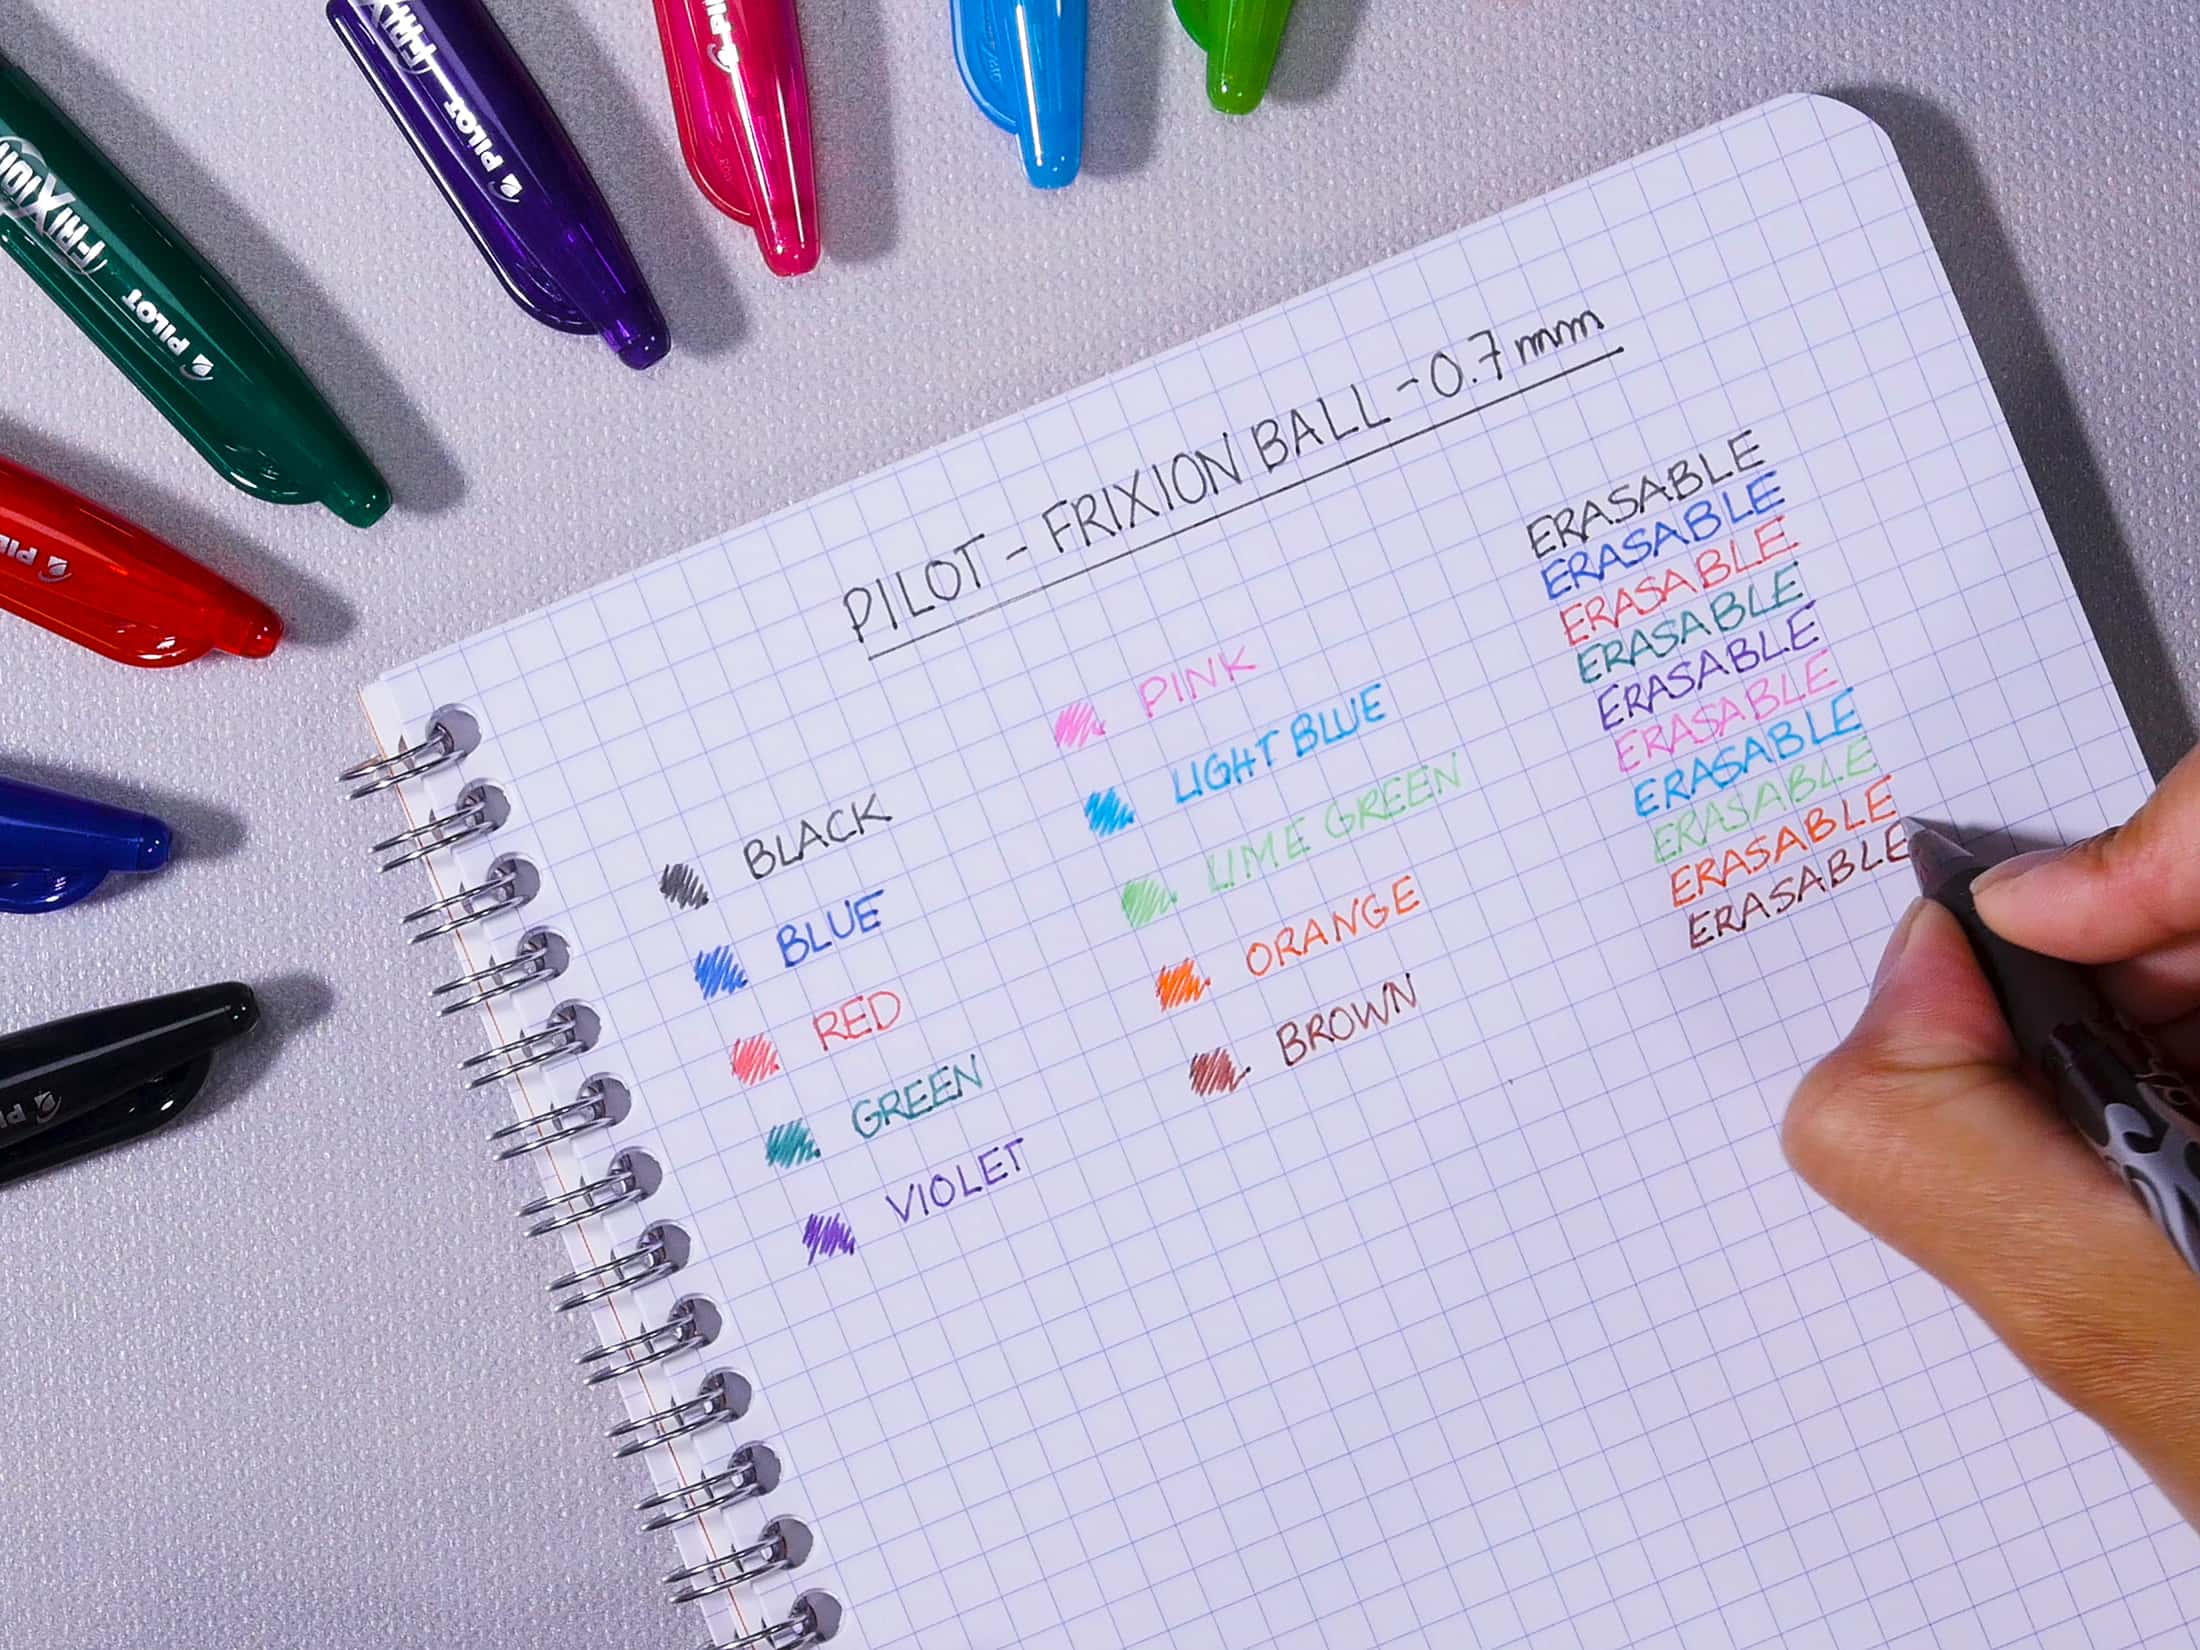 FRIXION
PILOT
FRIXION
PILOT
PILOT
PILOT - FRIXION BALL - 0.7 mm
BLACK
BLUE
RED
GREEN
VIOLET
PINK
LIGHT BLUE
LIME GREEN
ORANGE
BROWN
ERASABLE
ERASABLE
ERASABLE
ERASABLE
ERASABLE
ERASABLE
ERASABLE
ERASABLE
ERASABLE
ERASABLE